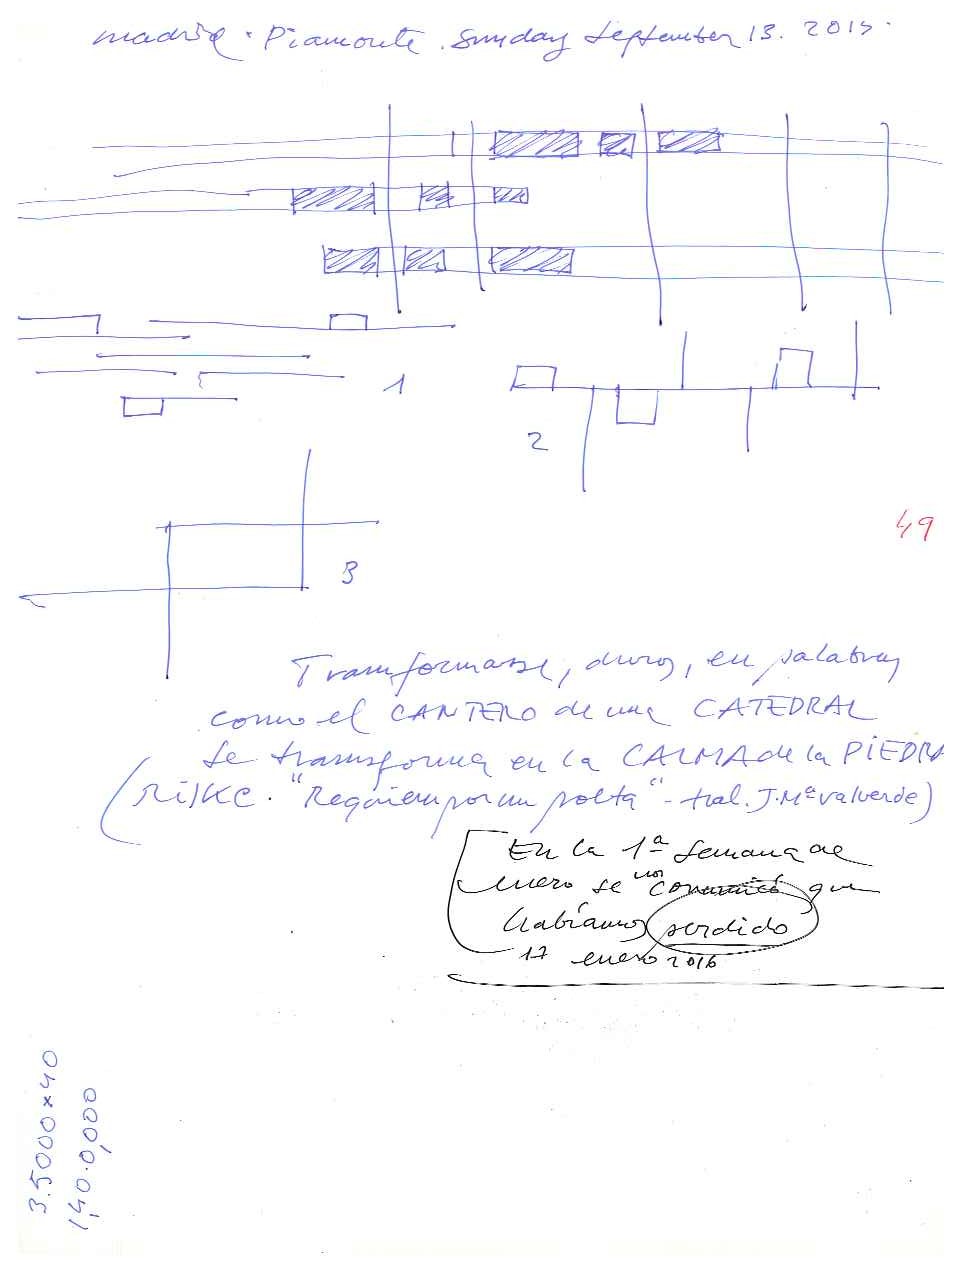 madrid. Piamonte. Sunday September 13. 2015.
1
2
3
49
Transformarse, duros, en palabras
como el CANTERO de una CATEDRAL
se transforma en la CALMA de la PIEDRA
(RilKe. "Requiem por un poeta" - trad. J. Mª Valverde)
En la 1ª semana de
enero se nos comunicó que
habíamos perdido
17 enero 2016
3.5000 x 40
1,40.0,000